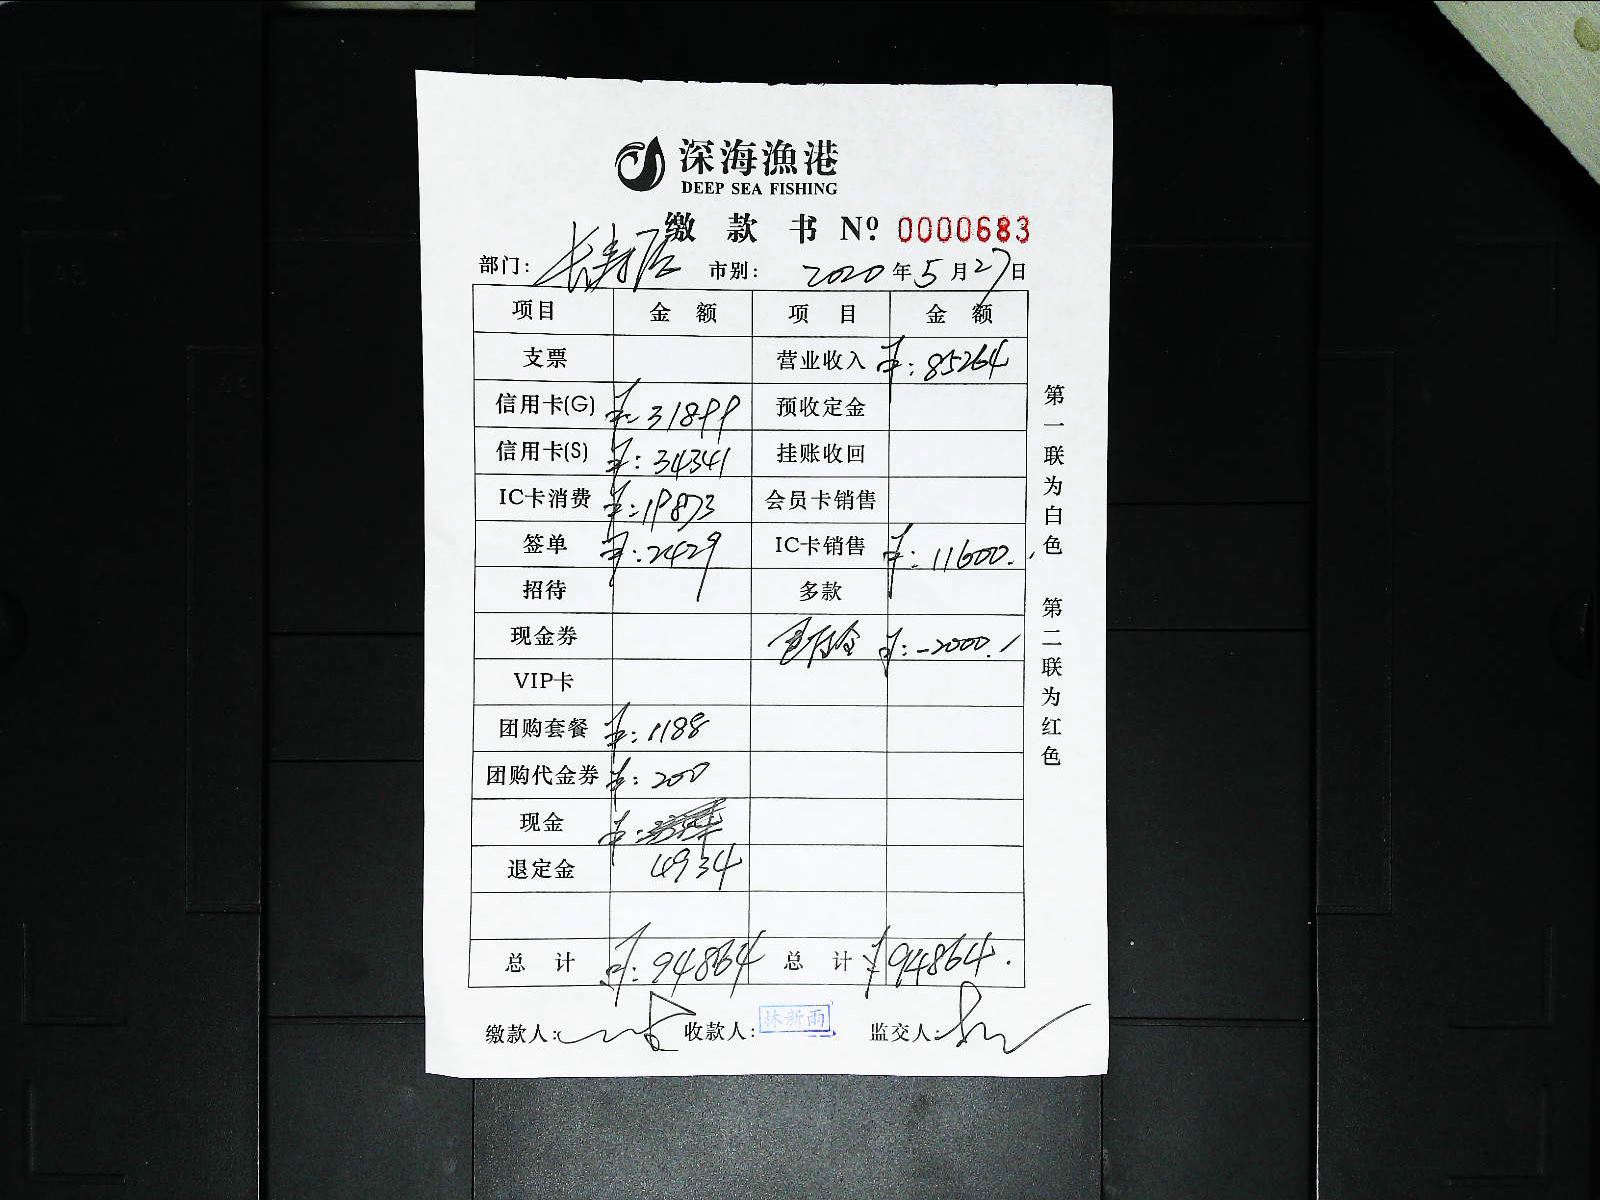 深海漁港
DEEP SEA FISHING
缴 款 书 Nº 0000683
部门: 长寿店 市别: 2020年5月27日
项目 金 额 项 目 金 额
支票 营业收入 ¥:85264
信用卡(G) ¥:31899 预收定金
信用卡(S) ¥:34341 挂账收回
IC卡消费 ¥:19873 会员卡销售
签单 ¥:2429 IC卡销售 ¥:11600.
招待 多款
现金券 ¥:-2000.
VIP卡
团购套餐 ¥:1188
团购代金券 ¥:200
现金 ¥:
退定金 4934
总 计 ¥:94864 总 计 ¥94864.
缴款人: 收款人: 林新雨 监交人:
第一联为白色 第二联为红色